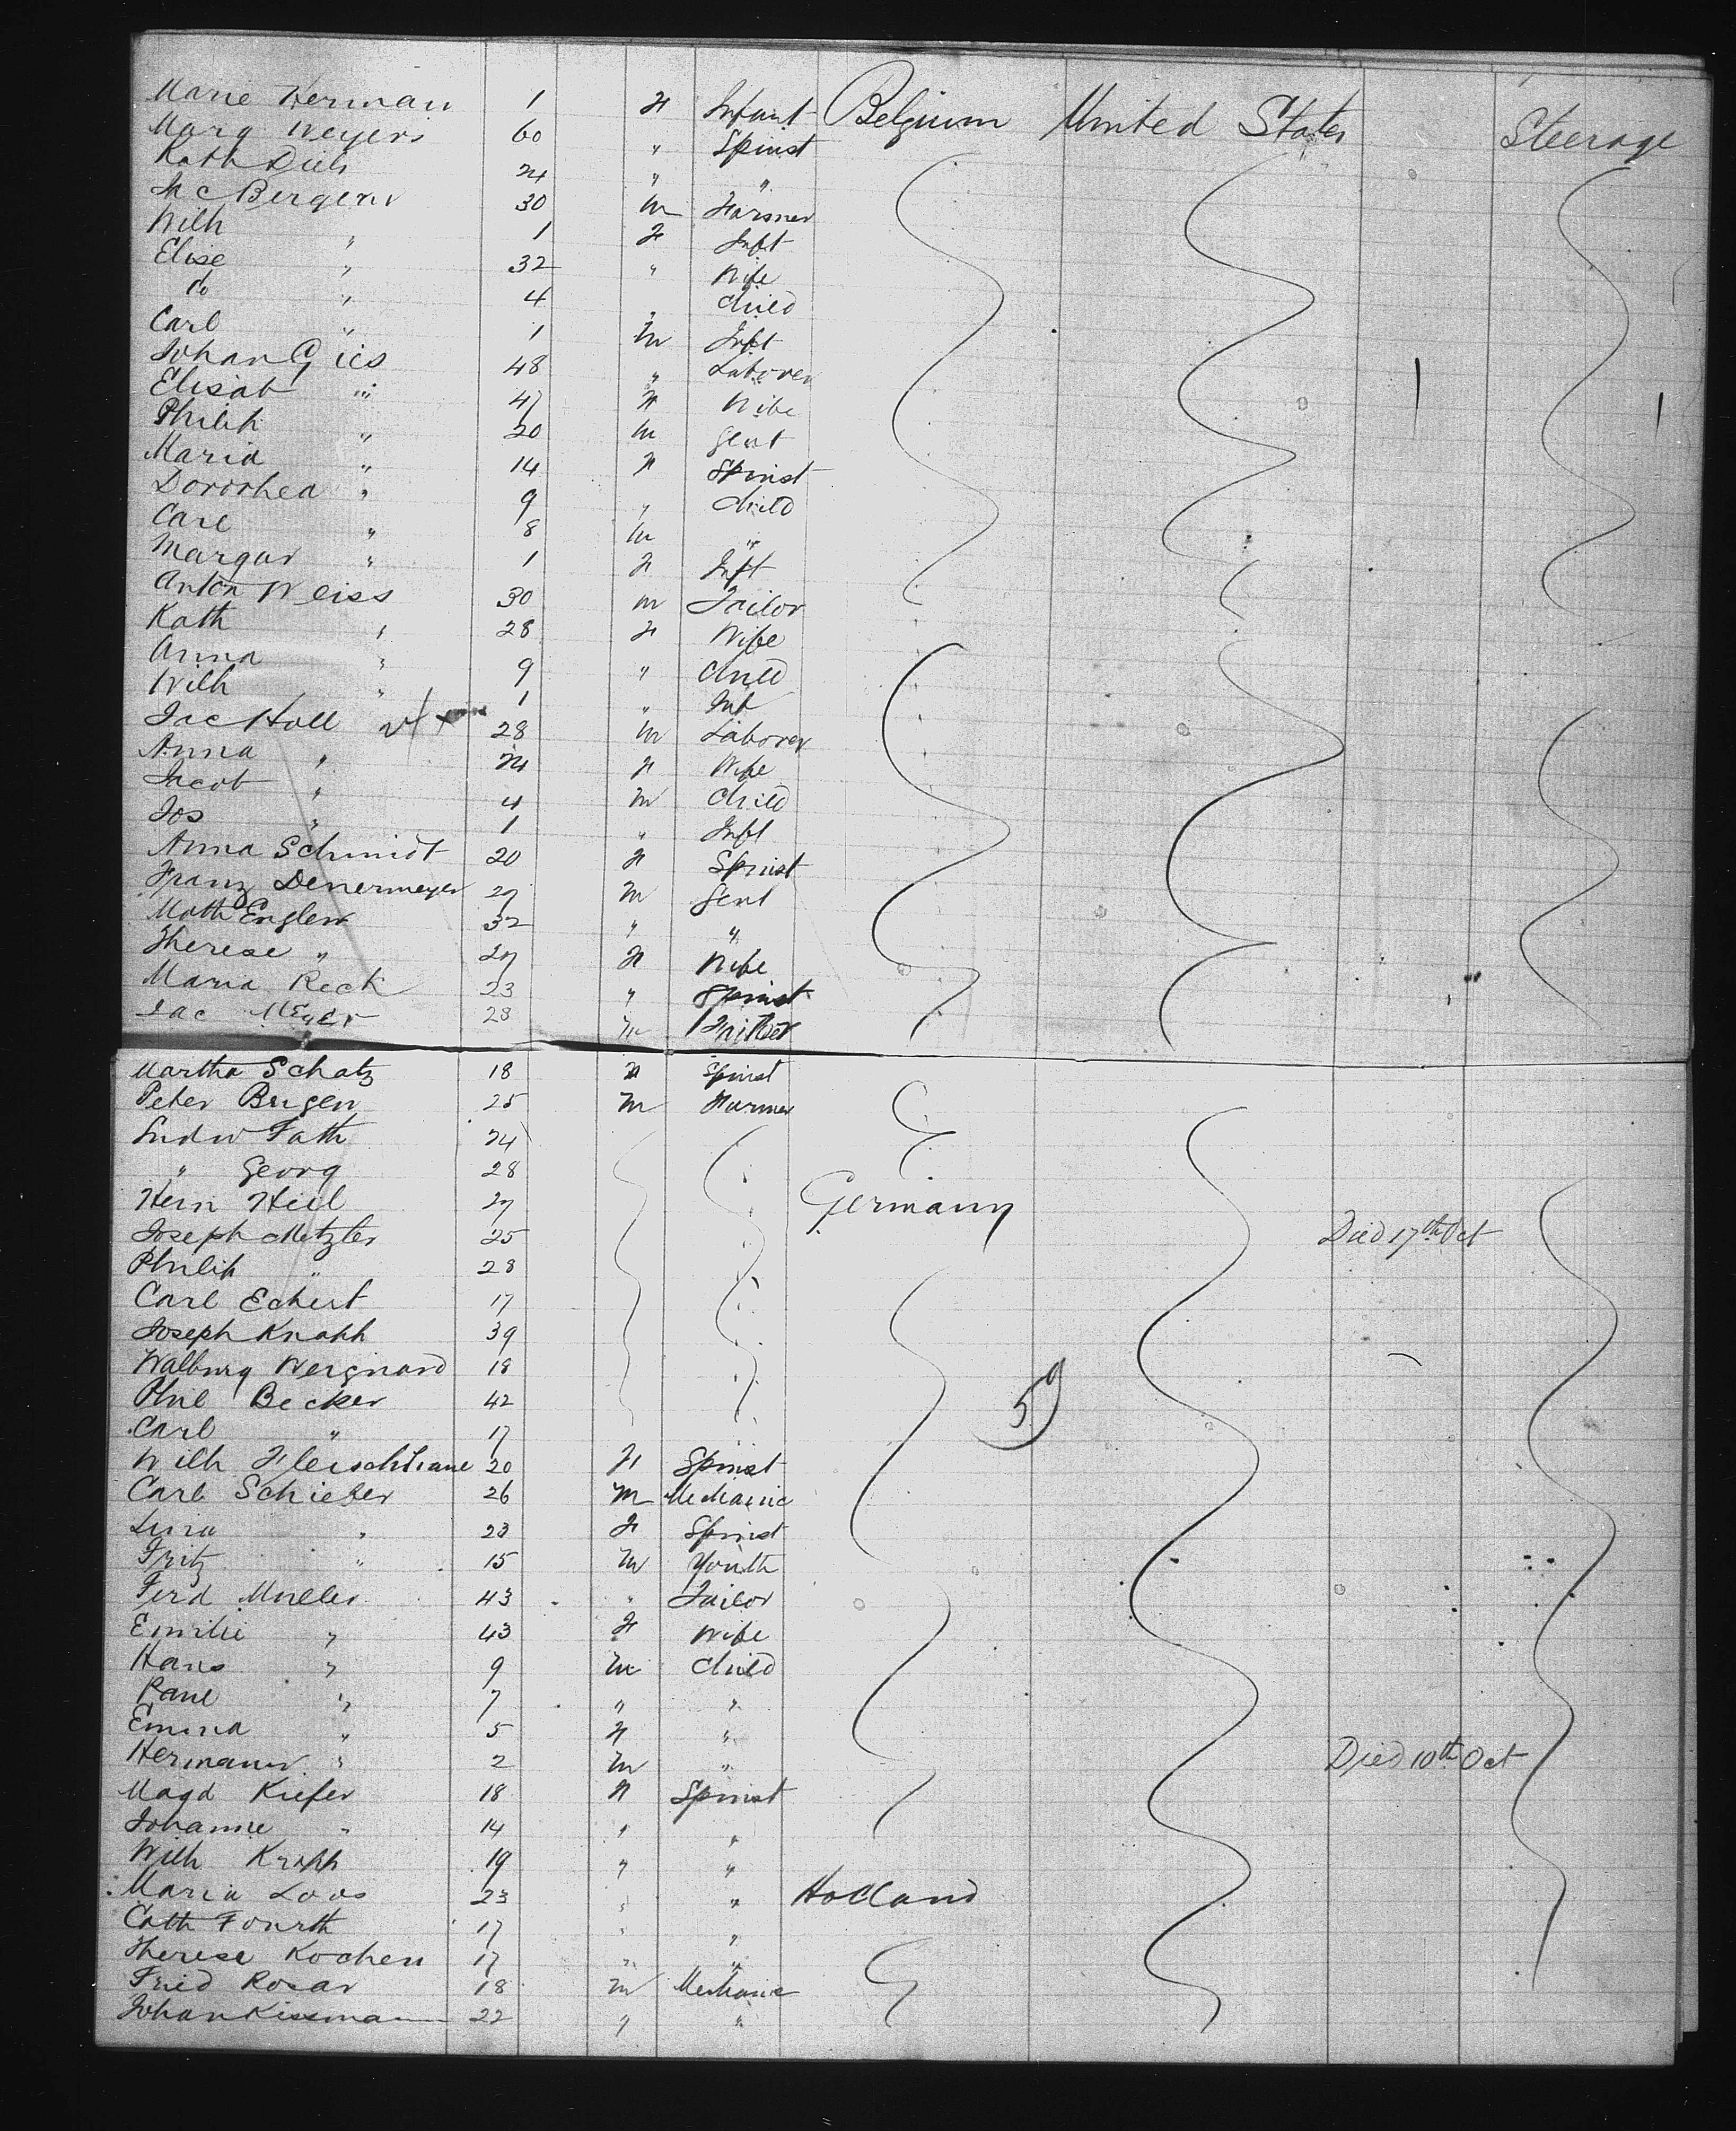 Marie Herman 1 F Infant Belgium United States Steerage
Marg Weyers 60 " Spinst
Kath Diels 24 " "
Jac Bergem 30 m Farmer
Wilh " 1 F Inft
Elise " 32 " Wife
do " 4 " child
Carl " 1 m Inft
Johan Gies 48 " Laborer
Elisab " 47 F Wife
Philip " 20 m Gent
Maria " 14 F Spinst
Dororhea " 9 " child
Carl " 8 m "
Margar " 1 F Inft
Anton Weiss 30 m Tailor
Kath " 28 F Wife
Anna " 9 " child
Wilh " 1 " Inf
Jac Holl 28 m Laborer
Anna " 24 F Wife
Jacob " 4 m child
Jos " 1 " Inft
Anna Schmidt 20 F Spinst
Franz Denermeyer 27 m Gent
Math Engler 32 " "
Therese " 27 F Wife
Maria Reck 23 " Spinst
Jac Meyer 28 m
Martha Schatz 18 F Spinst
Peter Brigen 25 m Farmer
Ludw Fath 24
" Georg 28
Hein Heil 27 Germany
Joseph Metzler 25 Died 17th Oct
Philip " 28
Carl Eckert 17
Joseph Knapp 39
Walburg Wergnard 18
Phil Becker 42 59
Carl " 17
Wilh 20 F Spinst
Carl Schiefer 26 m Mechanic
Lina " 23 F Spinst
Fritz " 15 m Youth
Ferd Muller 43 " Tailor
Emilie " 43 F Wife
Hans " 9 m child
Paul " 7 " "
Emma " 5 F "
Hermann " 2 m " Died 10th Oct
Magd Kiefer 18 F Spinst
Johanne " 14 " "
Wilh Kropp 19 " "
Maria Loos 23 " " Holland
Cath Fourth 17 " "
Therese Kochen 17 " "
Fried Rosar 18 m Mechanic
Johan Kissmann 22 " "